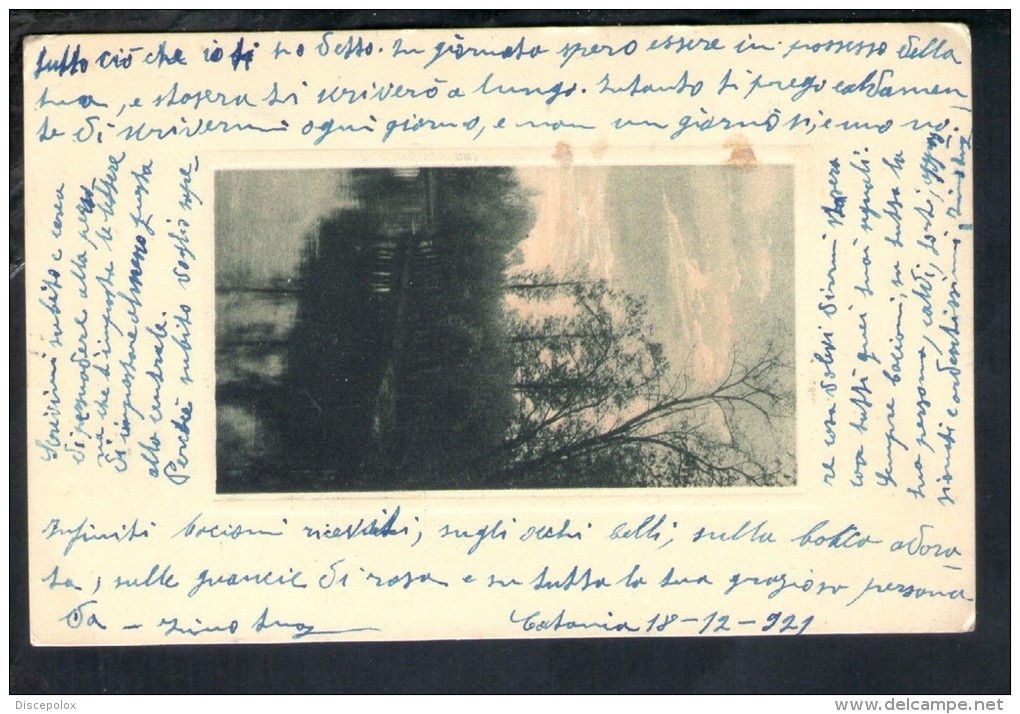 tutto ciò che io ti ho detto. In giornata spero essere in possesso della
tua, e stasera ti scriverò a lungo. Intanto ti prego caldamen-
te di scrivermi ogni giorno, e non un giorno si, e uno no.
Scrivimi subito e cerca
di prendere alla
che d'impostare le lettere
di impostare almeno questa
alla centrale.
Perché subito voglio sape-
re cosa volevi dirmi stasera
con tutti quei tuoi segnali.
Sempre bacioni, su tutta la
tua persona, caldi, forti,
sionati e ardentissimi
Infiniti bacioni ricevili, sugli occhi belli, sulla bocca adora
ta, sulle guancie di rosa e su tutta la tua graziosa persona
da
Catania 18-12-921
Discepolox
www.delcampe.net